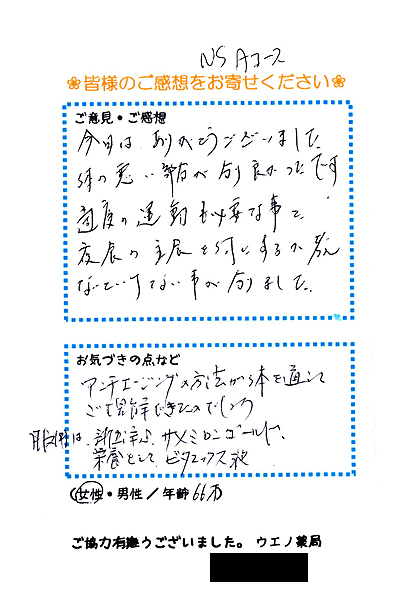 NS Aコース
❀皆様のご感想をお寄せください❀
ご意見・ご感想
今日は ありがとうございました
体の悪い部分が分り良かったです
適度の運動も必要な事と
夜食の主食を何にするか考え
ないといけない事が分りました。
お気づきの点など
アンチエージングの方法が体を通して
ご理解できたの
服は、 サメミロンゴールド、
栄養として ビタエックス液
女性・男性／年齢 66才
ご協力有難うございました。 ウエノ薬局